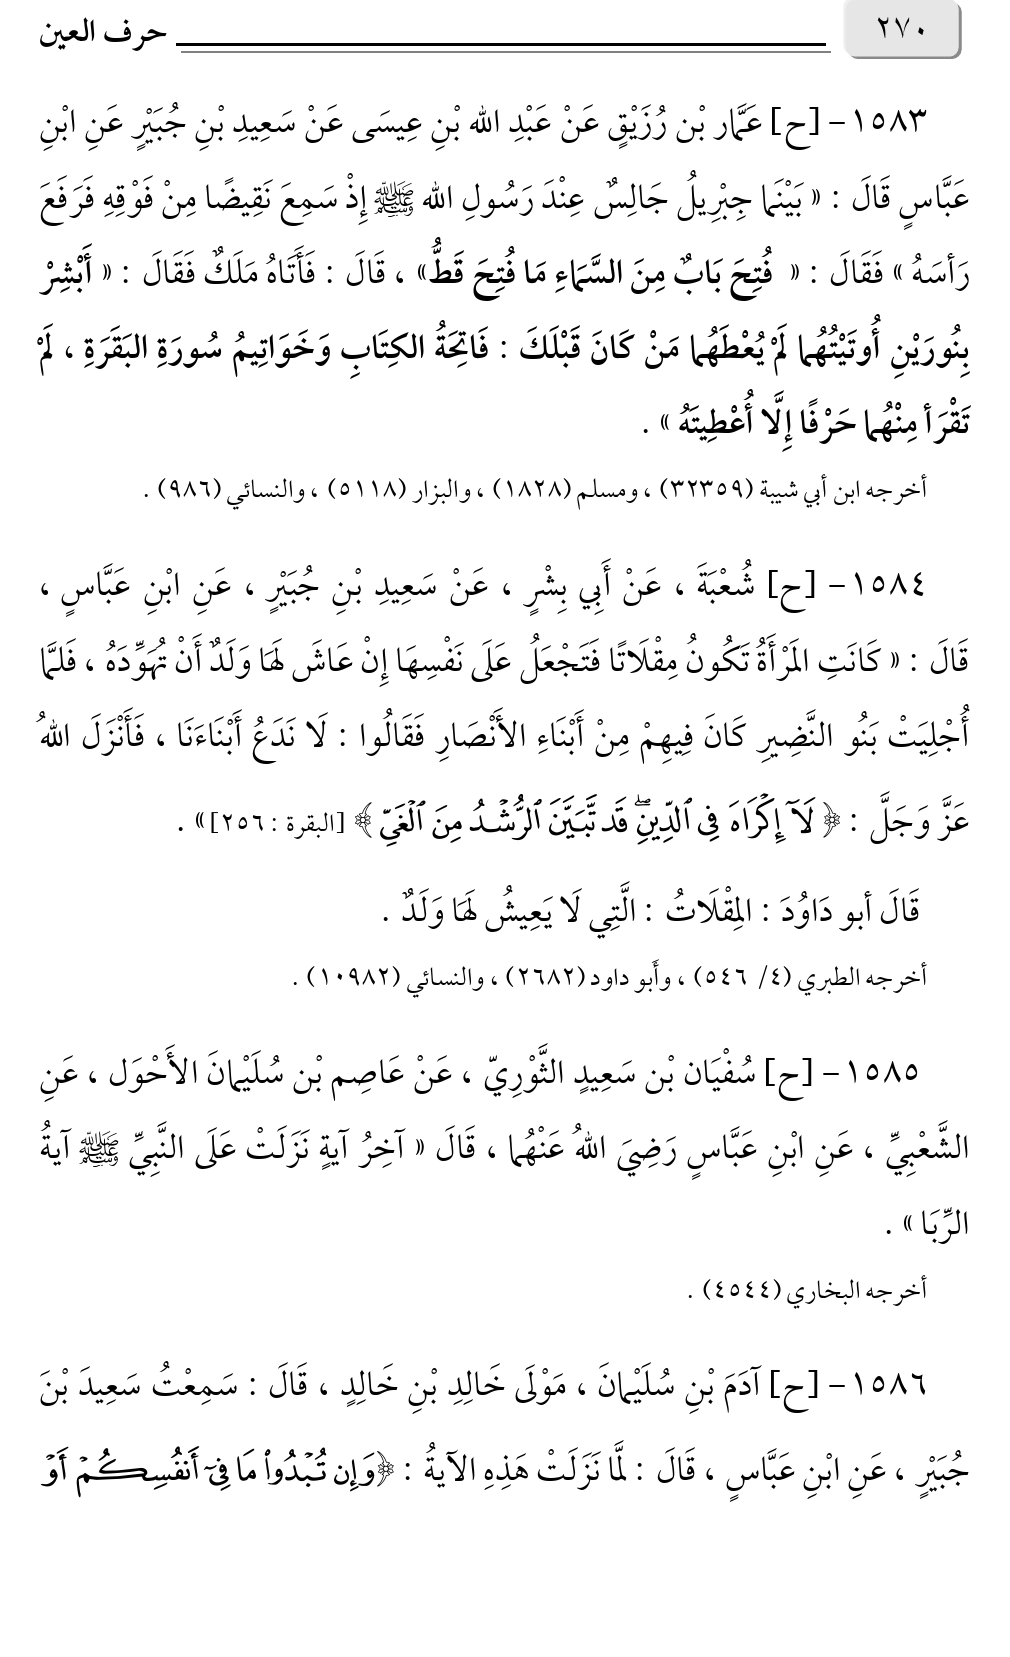 ٢٧٠
حرف العين
١٥٨٣ – [ح] عَمَّار بْن رُزَيْقٍ عَنْ عَبْدِ الله بْنِ عِيسَى عَنْ سَعِيدِ بْنِ جُبَيْرٍ عَنِ ابْنِ
عَبَّاسٍ قَالَ : « بَيْنَمَا جِبْرِيلُ جَالِسٌ عِنْدَ رَسُولِ الله ﷺ إِذْ سَمِعَ نَقِيضًا مِنْ فَوْقِهِ فَرَفَعَ
رَأسَهُ » فَقَالَ : « فُتِحَ بَابٌ مِنَ السَّمَاءِ مَا فُتِحَ قَطُّ» ، قَالَ : فَأَتَاهُ مَلَكٌ فَقَالَ : « أَبْشِرْ
بِنُورَيْنِ أُوتَيْتُهُما لَمْ يُعْطَهُما مَنْ كَانَ قَبْلَكَ : فَاتِحَةُ الكِتَابِ وَخَوَاتِيمُ سُورَةِ البَقَرَةِ ، لَمْ
تَقْرَأ مِنْهُما حَرْفًا إِلَّا أُعْطِيتَهُ » .
أخرجه ابن أبي شيبة (٣٢٣٥٩) ، ومسلم (١٨٢٨) ، والبزار (٥١١٨) ، والنسائي (٩٨٦) .
١٥٨٤ – [ح] شُعْبَةَ ، عَنْ أَبِي بِشْرٍ ، عَنْ سَعِيدِ بْنِ جُبَيْرٍ ، عَنِ ابْنِ عَبَّاسٍ ،
قَالَ : « كَانَتِ المَرْأَةُ تَكُونُ مِقْلَاتًا فَتَجْعَلُ عَلَى نَفْسِهَا إِنْ عَاشَ لَهَا وَلَدٌ أَنْ تُهَوِّدَهُ ، فَلمَّا
أُجْلِيَتْ بَنُو النَّضِيرِ كَانَ فِيهِمْ مِنْ أَبْنَاءِ الأَنْصَارِ فَقَالُوا : لَا نَدَعُ أَبْنَاءَنَا ، فَأَنْزَلَ اللهُ
عَزَّ وَجَلَّ : ﴿ لَآ إِكۡرَاهَ فِى ٱلدِّينِۖ قَد تَّبَيَّنَ ٱلرُّشۡدُ مِنَ ٱلۡغَىِّ ﴾ [البقرة : ٢٥٦]» .
قَالَ أبو دَاوُدَ : المِقْلَاتُ : الَّتِي لَا يَعِيشُ لَهَا وَلَدٌ .
أخرجه الطبري (٤/ ٥٤٦) ، وأَبو داود (٢٦٨٢) ، والنسائي (١٠٩٨٢) .
١٥٨٥ – [ح] سُفْيَان بْن سَعِيدٍ الثَّوْرِيّ ، عَنْ عَاصِم بْن سُلَيْمانَ الأَحْوَل ، عَنِ
الشَّعْبِيِّ ، عَنِ ابْنِ عَبَّاسٍ رَضِيَ اللهُ عَنْهُما ، قَالَ « آخِرُ آيةٍ نَزَلَتْ عَلَى النَّبِيِّ ﷺ آيةُ
الرِّبَا » .
أخرجه البخاري (٤٥٤٤) .
١٥٨٦ – [ح] آدَمَ بْنِ سُلَيْمانَ ، مَوْلَى خَالِدِ بْنِ خَالِدٍ ، قَالَ : سَمِعْتُ سَعِيدَ بْنَ
جُبَيْرٍ ، عَنِ ابْنِ عَبَّاسٍ ، قَالَ : لمَّا نَزَلَتْ هَذِهِ الآيةُ : ﴿وَإِن تُبۡدُواْ مَا فِىٓ أَنفُسِكُمۡ أَوۡ